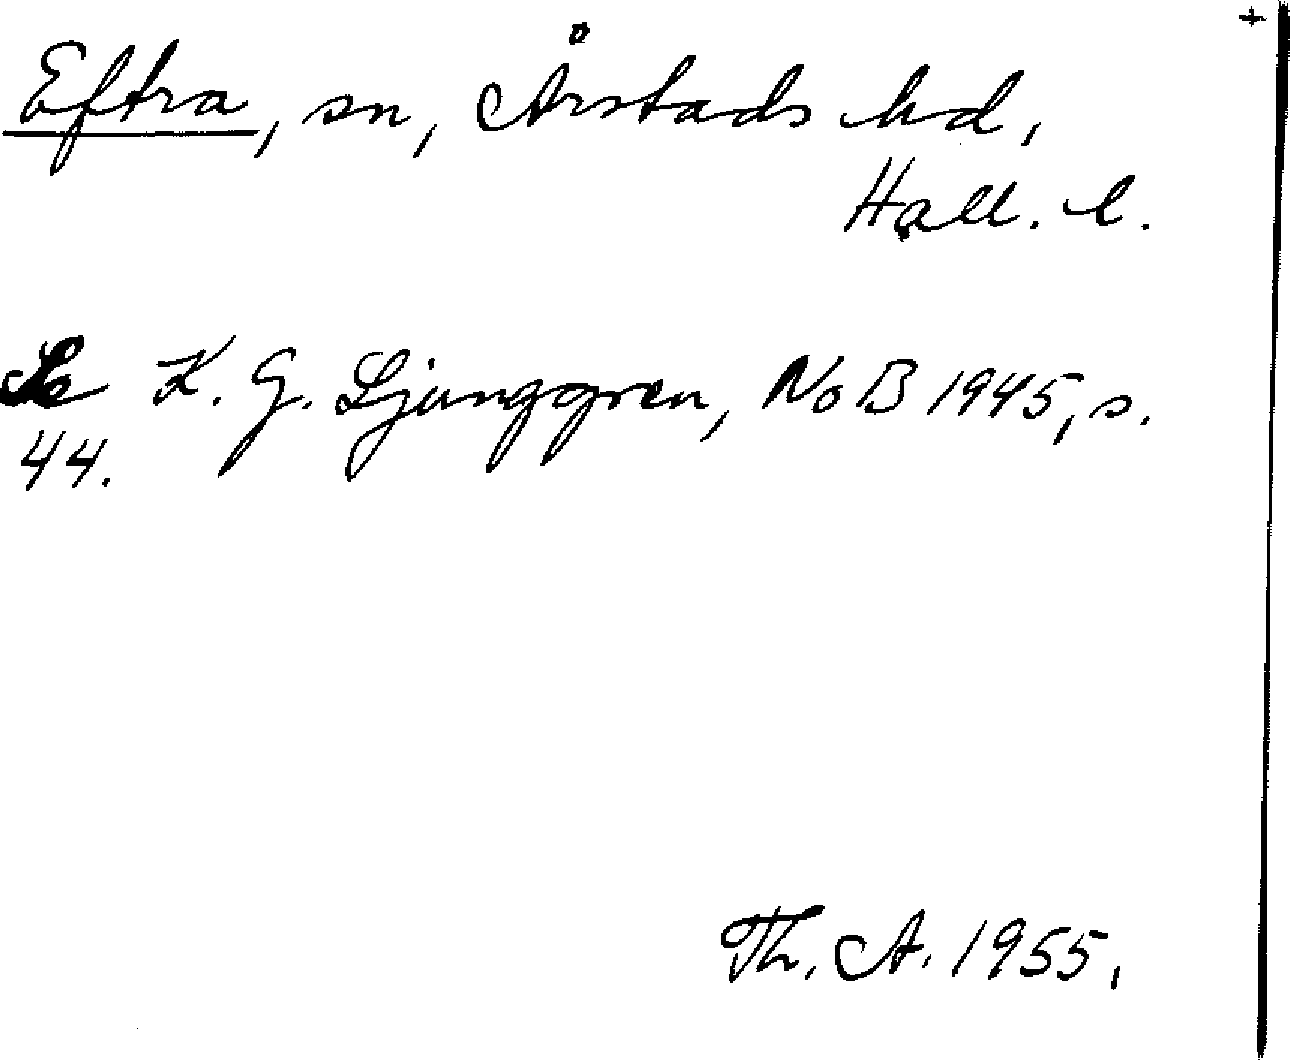 Eftra, sn, Årstads hd,
Hall. l.
Se K. G. Ljunggren, NoB 1945, s.
44.
Th. A. 1955.